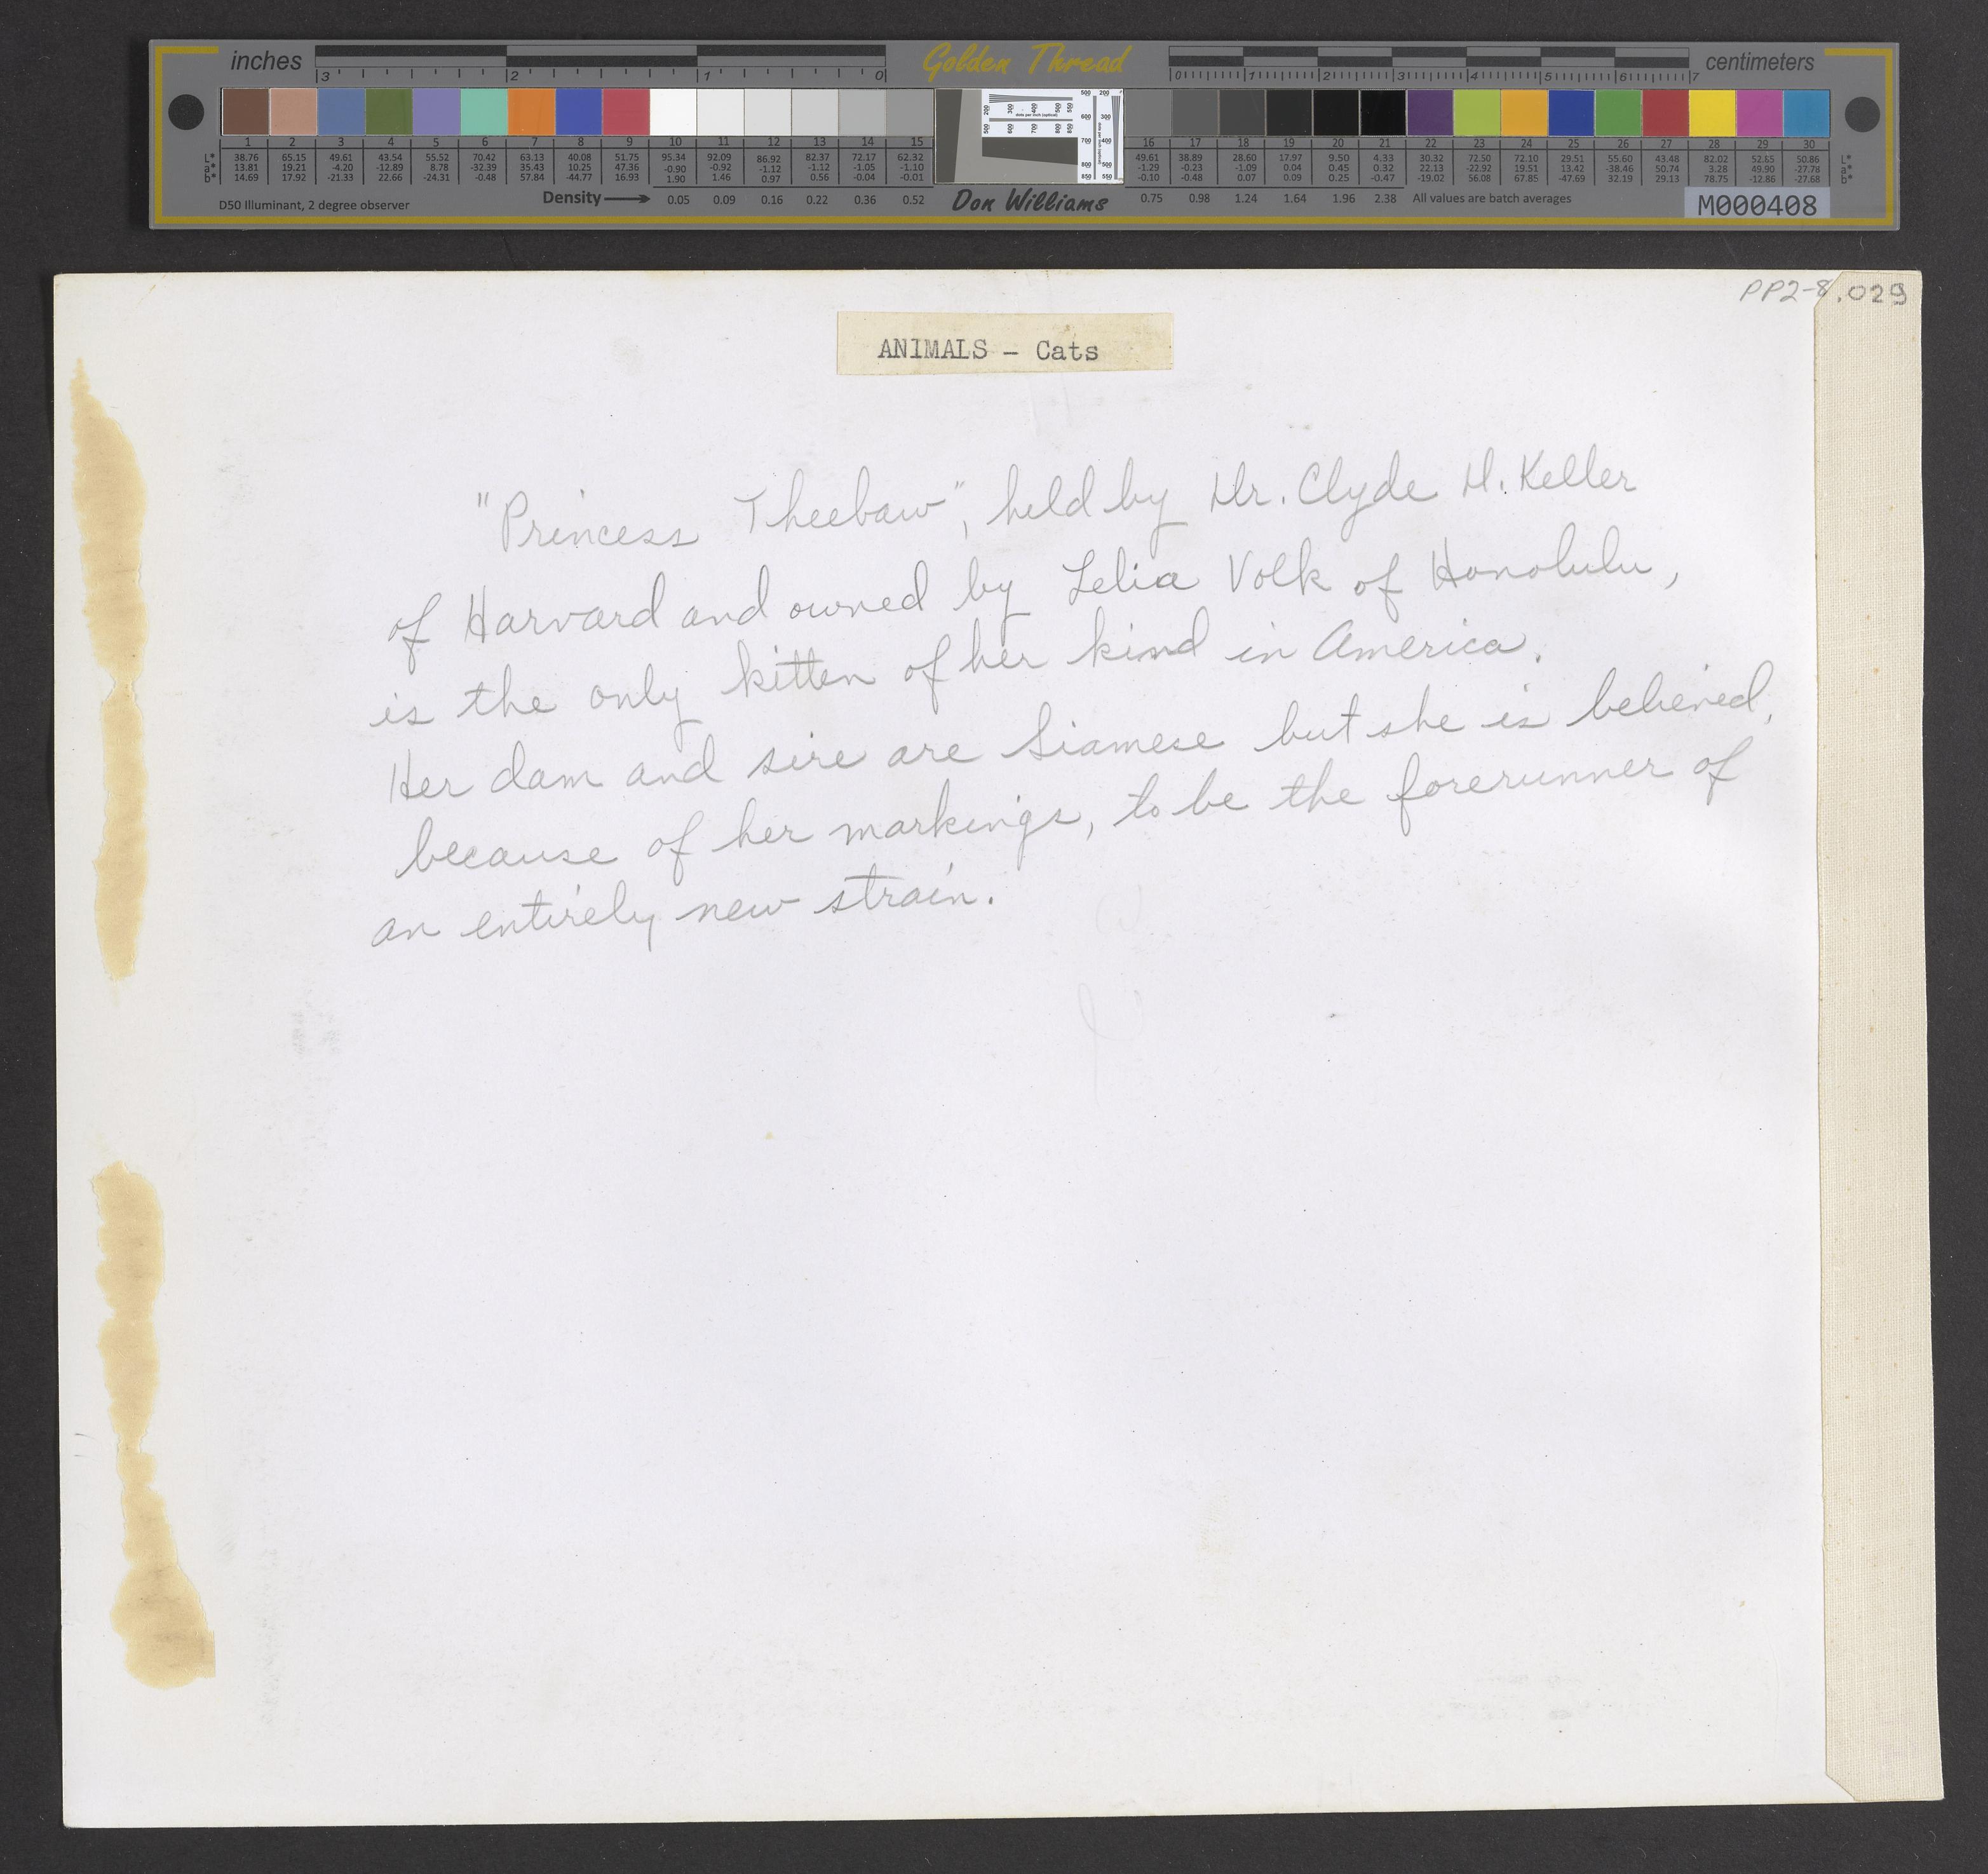 inches
3 2 1 0
Golden Thread
0 1 2 3 4 5 6 7
centimeters
1 2 3 4 5 6 7 8 9 10 11 12 13 14 15
16 17 18 19 20 21 22 23 24 25 26 27 28 29 30
L* 38.76 65.15 49.61 43.54 55.52 70.42 63.13 40.08 51.75 95.34 92.09 86.92 82.37 72.17 62.32
a* 13.81 19.21 -4.20 -12.89 8.78 -32.39 35.43 10.25 47.36 -0.90 -0.92 -1.12 -1.12 -1.05 -1.10
b* 14.69 17.92 -21.33 22.66 -24.31 -0.48 57.84 -44.77 16.93 1.90 1.46 0.97 0.56 -0.04 -0.01
49.61 38.89 28.60 17.97 9.50 4.33 30.32 72.50 72.10 29.51 55.60 43.48 82.02 52.65 50.86 L*
-1.29 -0.23 -1.09 0.04 0.45 0.32 22.13 -22.92 19.51 13.42 -38.46 50.74 3.28 49.90 -27.78 a*
-0.10 -0.48 0.07 0.09 0.25 -0.47 -19.02 56.08 67.85 -47.69 32.19 29.13 78.75 -12.86 -27.68 b*
D50 Illuminant, 2 degree observer
Density 0.05 0.09 0.16 0.22 0.36 0.52
Don Williams
0.75 0.98 1.24 1.64 1.96 2.38 All values are batch averages
M000408
PP2-8.029
ANIMALS - Cats
"Princess Theebaw", held by Dr. Clyde D. Keller
of Harvard and owned by Lelia Volk of Honolulu,
is the only kitten of her kind in America.
Her dam and sire are Siamese but she is believed,
because of her markings, to be the forerunner of
an entirely new strain.